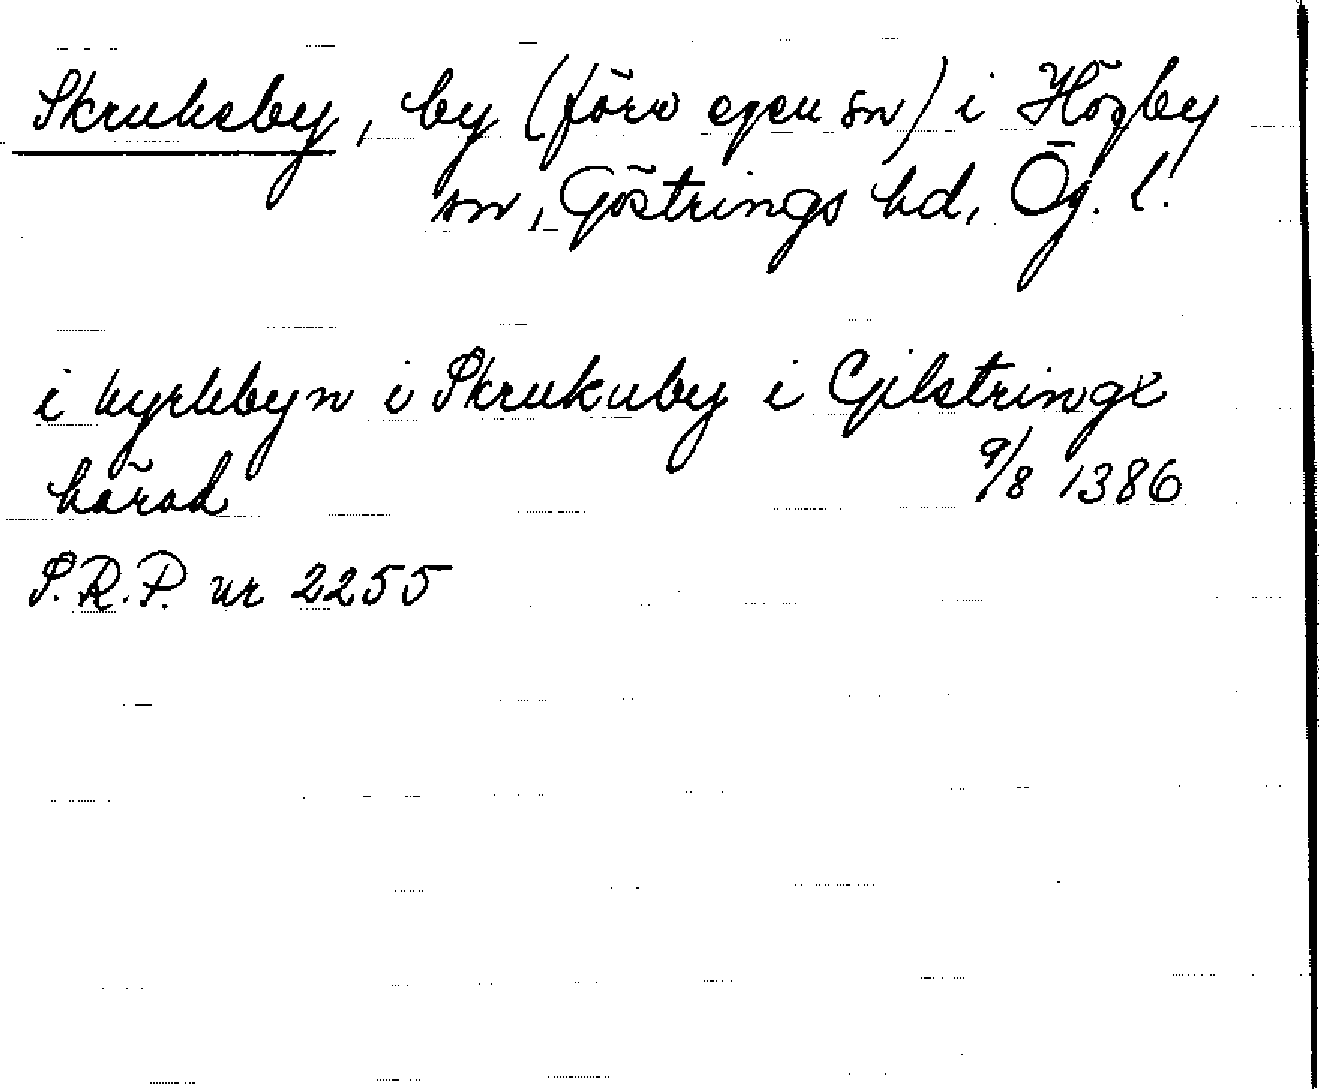 Skrukeby, by (förv egen sn) i Högby
sn, Göstrings hd, Ög. l.
i kyrkbyn i Skrukuby i Gilstringx
härad 9/8 1386
S.R.P. nr 2255